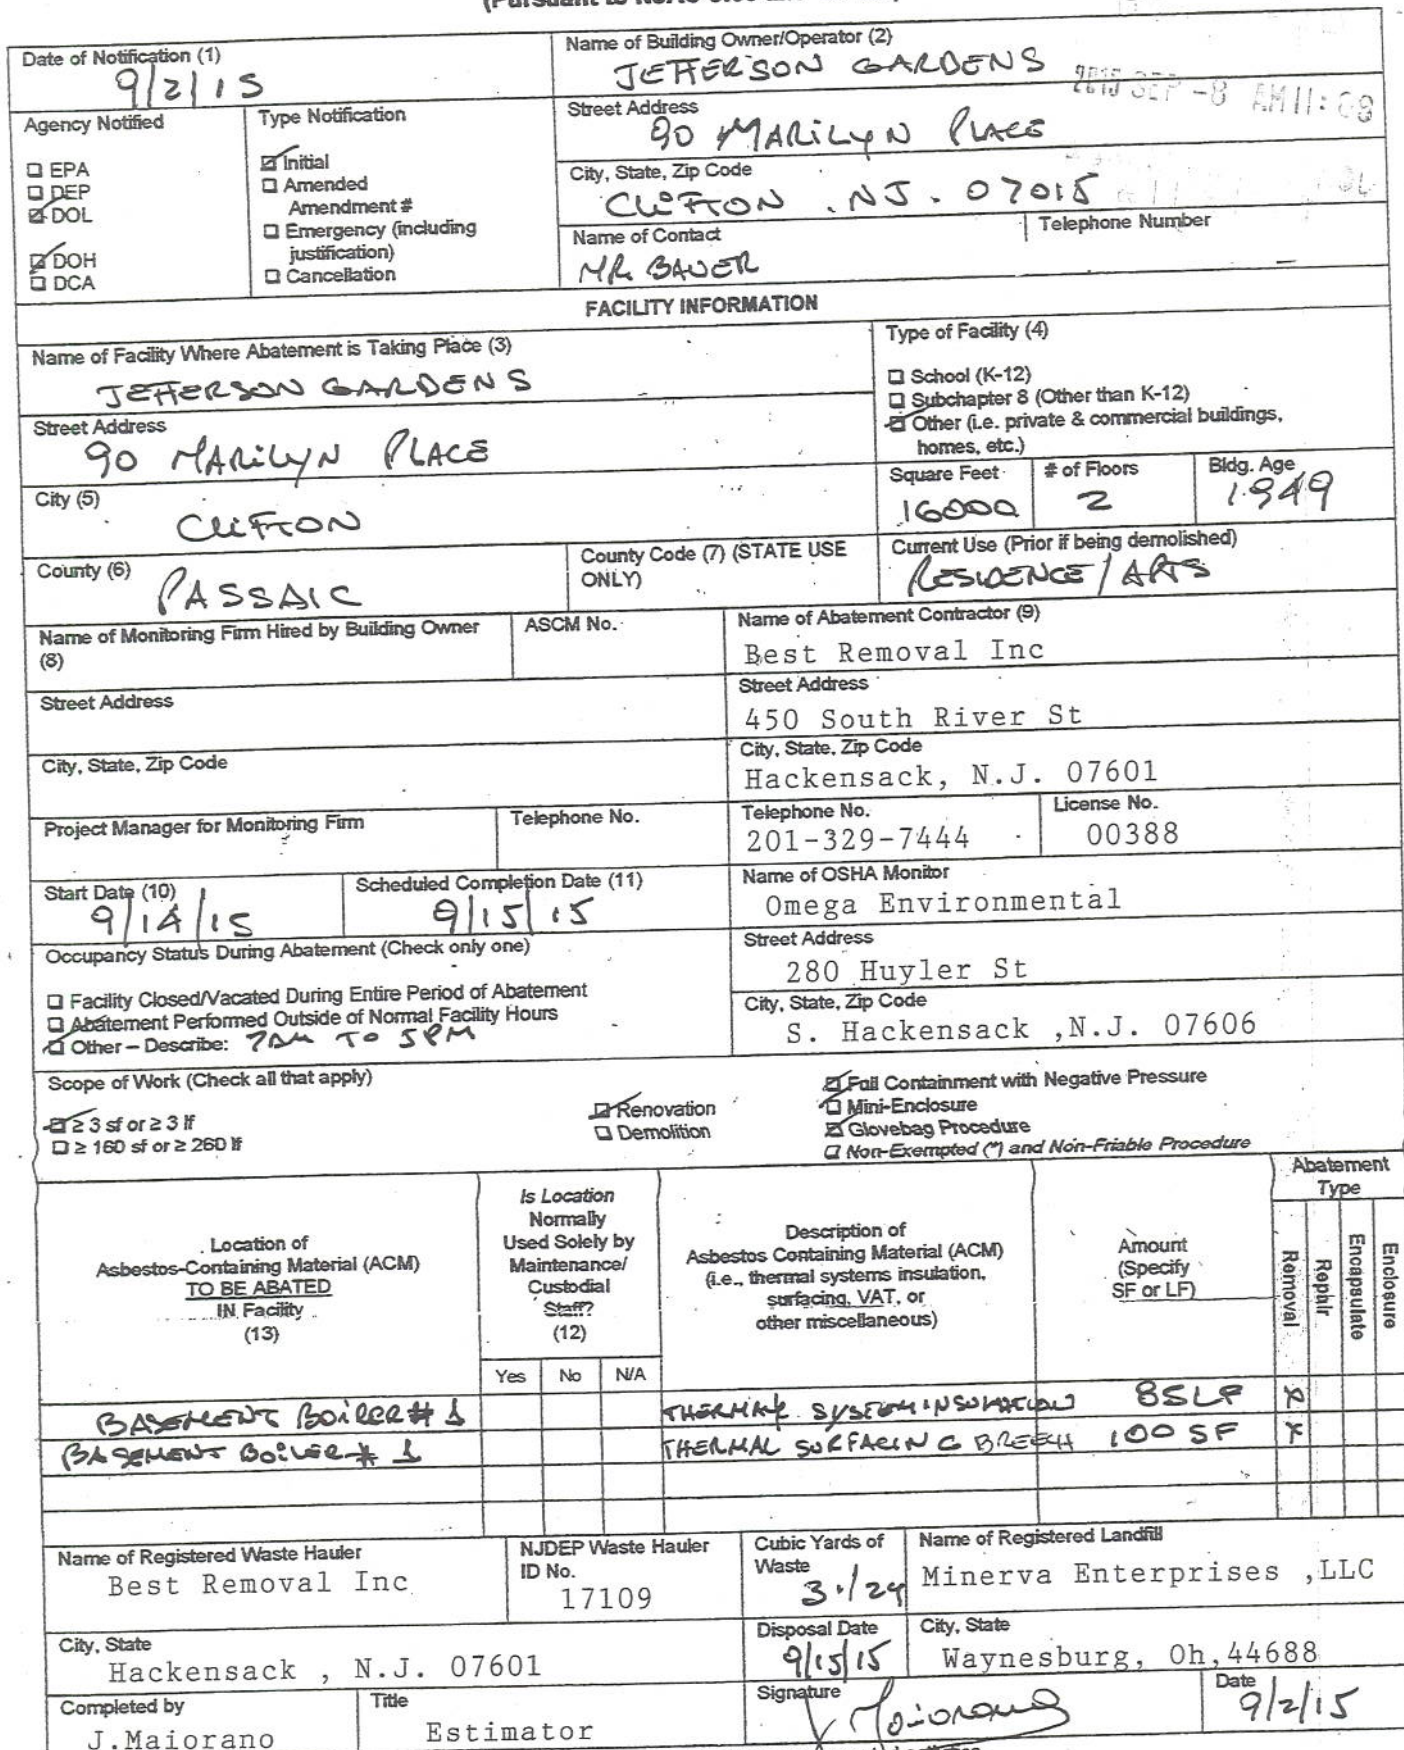 (Pursuant to
Date of Notification (1)
9/2/15
Name of Building Owner/Operator (2)
JEFFERSON GARDENS
2015 SEP -8 AM 11:
Agency Notified
Type Notification
Street Address
90 MARILYN PLACE
☐ EPA
☐ DEP
☑ DOL
☑ DOH
☐ DCA
☑ Initial
☐ Amended
Amendment #
☐ Emergency (including
justification)
☐ Cancellation
City, State, Zip Code
CLIFTON . NJ. 07015
Name of Contact
MR. BAUER
Telephone Number
FACILITY INFORMATION
Name of Facility Where Abatement is Taking Place (3)
JEFFERSON GARDENS
Type of Facility (4)
☐ School (K-12)
☐ Subchapter 8 (Other than K-12)
☑ Other (i.e. private & commercial buildings,
homes, etc.)
Street Address
90 MARILYN PLACE
City (5)
CLIFTON
Square Feet
16000
# of Floors
2
Bldg. Age
1949
County (6)
PASSAIC
County Code (7) (STATE USE
ONLY)
Current Use (Prior if being demolished)
RESIDENCE / APTS
Name of Monitoring Firm Hired by Building Owner
(8)
ASCM No.
Name of Abatement Contractor (9)
Best Removal Inc
Street Address
Street Address
450 South River St
City, State, Zip Code
City, State, Zip Code
Hackensack, N.J. 07601
Project Manager for Monitoring Firm
Telephone No.
Telephone No.
201-329-7444
License No.
00388
Start Date (10)
9/14/15
Scheduled Completion Date (11)
9/15/15
Name of OSHA Monitor
Omega Environmental
Occupancy Status During Abatement (Check only one)
☐ Facility Closed/Vacated During Entire Period of Abatement
☐ Abatement Performed Outside of Normal Facility Hours
☑ Other – Describe: 7AM TO 5PM
Street Address
280 Huyler St
City, State, Zip Code
S. Hackensack ,N.J. 07606
Scope of Work (Check all that apply)
☑ ≥ 3 sf or ≥ 3 lf
☐ ≥ 160 sf or ≥ 260 lf
☑ Renovation
☐ Demolition
☑ Full Containment with Negative Pressure
☑ Mini-Enclosure
☑ Glovebag Procedure
☐ Non-Exempted (*) and Non-Friable Procedure
Location of
Asbestos-Containing Material (ACM)
TO BE ABATED
IN Facility
(13)
Is Location
Normally
Used Solely by
Maintenance/
Custodial
Staff?
(12)
Yes No N/A
Description of
Asbestos Containing Material (ACM)
(i.e., thermal systems insulation,
surfacing, VAT, or
other miscellaneous)
Amount
(Specify
SF or LF)
Abatement
Type
Removal
Repair
Encapsulate
Enclosure
BASEMENT BOILER # 1 THERMAL SYSTEM INSULATION 85 LF X
BASEMENT BOILER # 1 THERMAL SURFACING BREECH 100 SF X
Name of Registered Waste Hauler
Best Removal Inc
NJDEP Waste Hauler
ID No.
17109
Cubic Yards of
Waste
Name of Registered Landfill
Minerva Enterprises ,LLC
City, State
Hackensack , N.J. 07601
Disposal Date
9/15/15
City, State
Waynesburg, Oh,44688
Completed by
J.Maiorano
Title
Estimator
Signature
Maiorano
Date
9/2/15